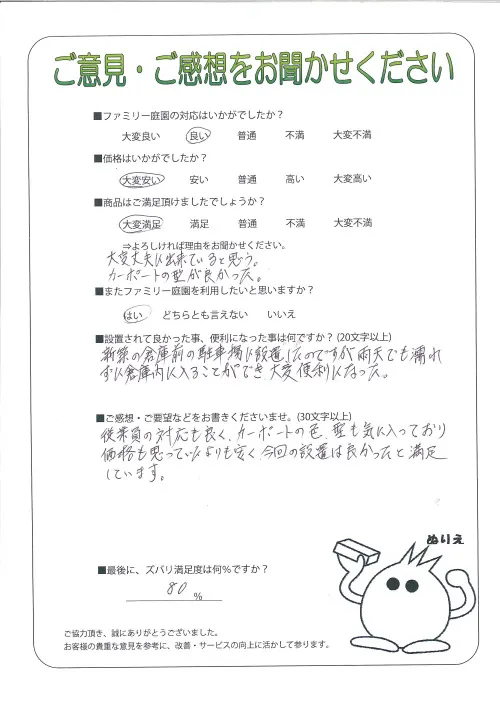 ご意見・ご感想をお聞かせください
■ファミリー庭園の対応はいかがでしたか？
大変良い 良い 普通 不満 大変不満
■価格はいかがでしたか？
大変安い 安い 普通 高い 大変高い
■商品はご満足頂けましたでしょうか？
大変満足 満足 普通 不満 大変不満
⇒よろしければ理由をお聞かせください。
大変丈夫に出来ていると思う。
カーポートの型が良かった。
■またファミリー庭園を利用したいと思いますか？
はい どちらとも言えない いいえ
■設置されて良かった事、便利になった事は何ですか？(20文字以上)
新築の倉庫前の駐車場に設置したのですが雨天でも濡れ
ずに倉庫内に入ることができ大変便利になった。
■ご感想・ご要望などをお書きくださいませ。(30文字以上)
従業員の対応も良く、カーポートの色、型も気に入っており
価格も思っていたよりも安く今回の設置は良かったと満足
しています。
ぬりえ
■最後に、ズバリ満足度は何％ですか？
80 %
ご協力頂き、誠にありがとうございました。
お客様の貴重な意見を参考に、改善・サービスの向上に活かして参ります。